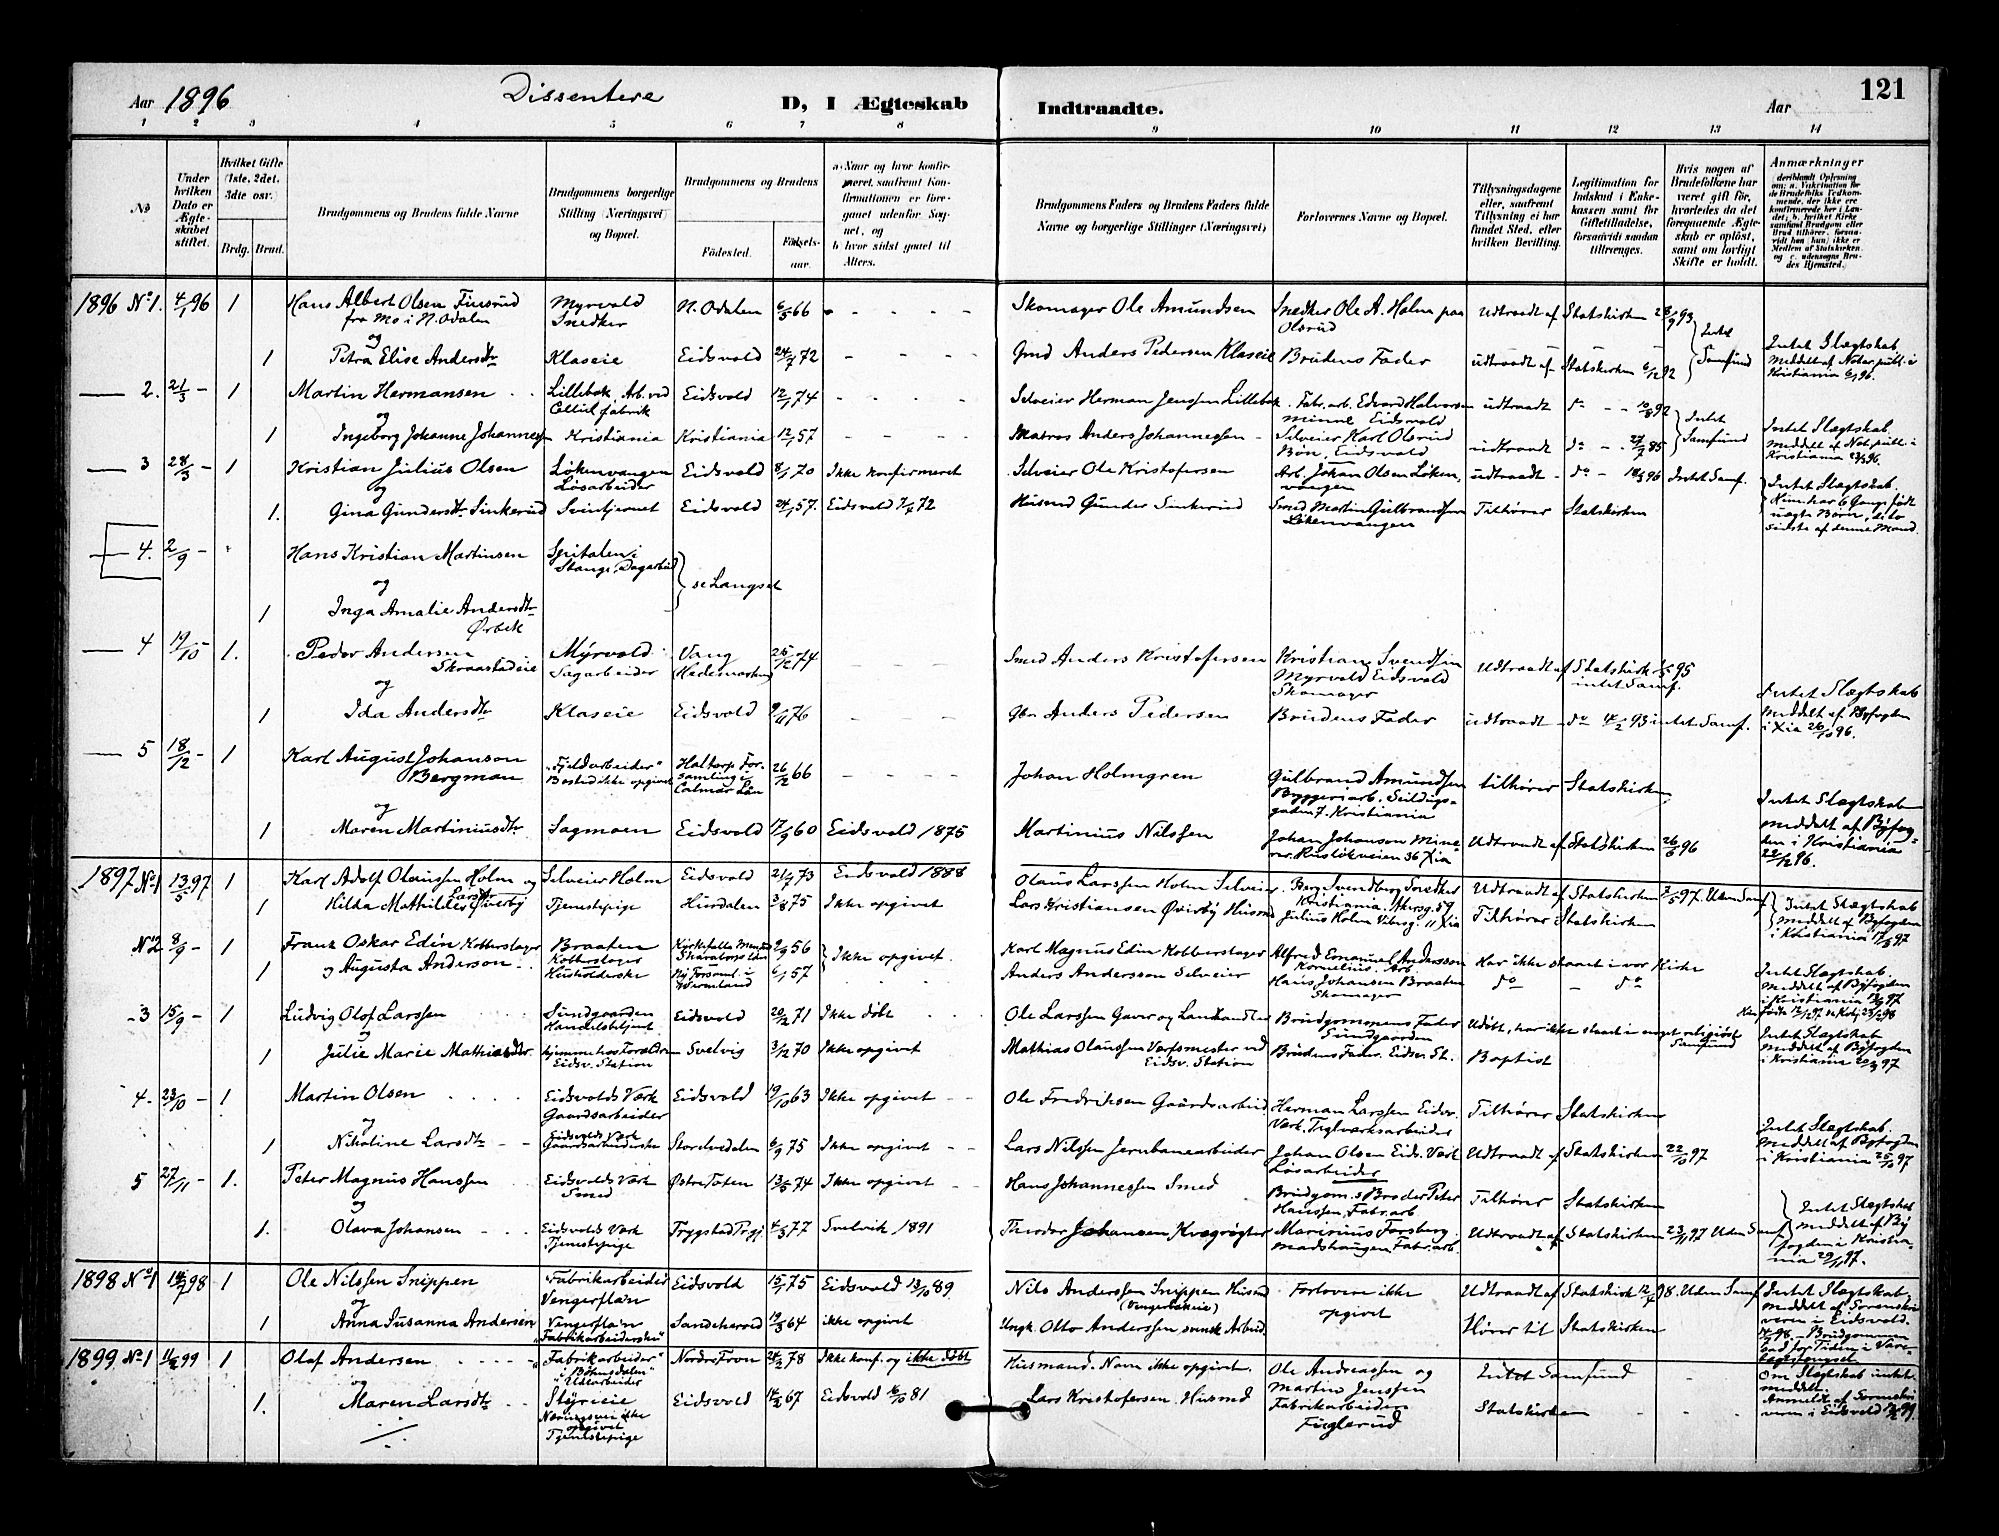 Aar 1896
Dissentere
D, I Ægteskab
Indtraadte.
Aar
121
1 2 3 4 5 6 7 8 9 10 11 12 13 14
No
Under hvilken Dato er Ægteskabet stiftet.
Hvilket Gifte (1ste, 2det, 3die osv.)
Brdg. Brud.
Brudgommens og Brudens fulde Navne
Brudgommens borgerlige Stilling (Næringsvei) og Bopæl.
Brudgommens og Brudens
Fødested.
Fødselsaar.
a) Naar og hvor konfirmeret, saafremt Konfirmationen er foregaaet udenfor Sognet, og
b) hvor sidst gaaet til Alters.
Brudgommens Faders og Brudens Faders fulde Navne og borgerlige Stillinger (Næringsvei)
Forlovernes Navne og Bopæl.
Tillysningsdagene eller, saafremt Tillysning ei har fundet Sted, efter hvilken Bevilling.
Legitimation for Indskud i Enkekassen samt for Giftetilladelse, forsaavidt saadan tiltrænges.
Hvis nogen af Brudefolkene har været gift før, hvorledes da det foregaaende Ægteskab er opløst, samt om lovligt Skifte er holdt.
Anmærkninger
1896 No 1. 4/1 96 1 Hans Albert Olsen Finsrud fra Mo i N. Odalen Myrvold Snedker N. Odalen 6/5 66 Skomager Ole Amundsen Snedker Ole A. Holm paa Olsrud Udtraadt af Statskirken 28/9 93 Intet Samfund
og
1 Petra Elise Andersdtr Klaseie Eidsvold 24/7 72 Gmd Anders Pedersen Klaseie Brudens Fader udtraadt af Statskirken 6/12 92 Intet Slægtskab meddelt af Notar. publ. i Kristiania 6/1 96.
2. 21/3 1 Martin Hermansen Lillebæk, Arb. ved Cellul. fabrik Eidsvold 12/1 74 Selveier Herman Jenssen Lillebæk Fabr. arb. Edvard Halvorsen Minne Eidsvold udtraadt do 10/8 92 Intet Samfund
og
1 Ingeborg Johanne Johannessen Kristiania Kristiania 12/1 57 Matros Anders Johannessen Selveier Karl Olsrud Bøn, Eidsvold udtraadt do 27/7 85 Intet Slægtskab. meddelt af Not. publ. i Kristiania 23/3 96.
3 28/3 1 Kristian Julius Olsen Løkenvangen Løsarbeider Eidsvold 8/1 70 Ikke konfirmeret Selveier Ole Kristofersen Arb. Johan Olsen Løkenvangen udtraadt do 18/3 96 Intet Samf.
og
1. Gina Gundersdtr Sinkerud Svintjernet Eidsvold 24/1 57. Eidsvold 7/7 72 Husmd Gunder Sinkerud Smed Martin Gulbrandsen Løkenvangen Tilhører Statskirken Intet Slægtskab. Hun har 6 Gange født uægte Børn, de to sidste af denne Mand.
4. 2/9 Hans Kristian Martinsen Spitalen i Stange, Dagarbeid se Langset
og
1 Inga Amalie Andersdtr Ørbek
4 19/10 1. Peder Andersen Skraastadeie Myrvold Sagarbeider Vang Hedemarken 25/12 74 Smed Anders Kristofersen Kristian Svendsen Myrvold Eidsvold Skomager Udtraadt af Statskirk. 95 intet Samf.
og
1 Ida Andersdtr Klaseie Eidsvold 76 Gbr Anders Pedersen Brudens Fader udtraadt do 4/2 93 intet Samf. Intet Slægtskab meddelt af Byfogden i Xia 26/10 96.
5 18/12 1 Karl August Johanson Bergman "Fjeldarbeider" Bosted ikke opgivet Haltorp Forsamling i Calmar Län 26/12 66 Johan Holmgren Gulbrand Amundsen Bryggeriarb. Seildugsgaden 7. Kristiania tilhører Statskirken
og
1 Maren Martiniusdtr Sagmoen Eidsvold 17/9 60 Eidsvold 1875 Martinius Nilssen Johan Johanson Minerer. Ruslökveien 36 Xia Udtraadt af Statskirken 26/6 96 Intet Slægtskab meddelt af Byfogden i Kristiania 22/12 96.
1897 No 1 13/5 97 1 Karl Adolf Olaussen Holm og Selveier Holm Eidsvold 21/7 73 Eidsvold 1888 Olaus Larssen Holm Selveier Berg Svendberg Snedker Kristiania. Akersg. 59 Udtraadt af Statskirken 97. Uden Samf
1 Hilda Mathilde Larsdtr Øverby Tjenestepige Hurdalen 3/8 75 Ikke opgivet Lars Kristiansen Øverby Husmd Julius Holm Vibesg. 11 Xia Tilhører Statskirken Intet Slægtskab meddelt af Byfogden i Kristiania 97
No 2 8/9 1 Frank Oskar Edin Kobberslager Braaten Kobberslager 2/9 56 Ikke opgivet. Karl Magnus Edin Kobberslager Alfred Emanuel Andersson Kornelius. Arb. Har ikke staaet i vor Kirke
1 og Augusta Anderson Husholderske Ny Forsaml. i Wermland 6/1 57 Anders Andersson Selveier Hans Johansen Braaten Skomager do do Intet Slægtskab. meddelt af Byfogden i Kristiania 97
3 15/9 1 Ludvig Olaf Larssen Sundgaarden Handelsbetjent Eidsvold 20/2 71 Ikke døbt Ole Larssen Garver og Landhandler Brudgommens Fader Sundgaarden Udøbt, har ikke staaet i noget religiøst Samfund
og
1 Julie Marie Mathiasdtr. hjemme hos Forældrene Eidsv. Station Svelvig 3/12 70 Ikke opgivet Mathias Olaussen Værksmester ved Eidsv. Station Brudens Fader. Eidsv. St. Baptist Intet Slægtskab meddelt af Byfogden i Kristiania 97
4. 23/10 1 Martin Olsen Eidsvolds Værk Gaardsarbeider Eidsvold 19/10 63 Ikke opgivet Ole Fredriksen Gaardsarbeid. Herman Larssen Eidsv. Værk. Teglværksarbeider Tilhører Statskirken
og
1 Nikoline Larsdtr Eidsvolds Værk Gaardsarbeiderske Storelvedalen 6/9 75 Ikke opgivet Lars Nilssen Jernbanearbeider Johan Olsen Eids. Værk Løsarbeider Udtraadt af Statskirken 22/10 97 Intet Slægtskab. meddelt af Byfogden i Kristiania 25/10 97
5 27/11 1. Peter Magnus Hanssen Eidsvolds Værk Smed Østre Toten 13/5 74 Ikke opgivet Hans Johannessen Smed Brudgom.s Broder Peter Hanssen, Fabr. arb Tilhører Statskirken
og
1. Olava Johansen Eidsvolds Værk Tjenestepige Trygstad Trgj. 4/3 77 Svelvik 1891 Theodor Johansen Kvægrøgter Marinius Forsberg Madshaugen Fabr. arb. Udtraadt af Statskirken 23/11 97 Uden Samf Intet Slægtskab meddelt af Byfogden i Kristiania 29/11 97.
1898 No 1 98 1 Ole Nilssen Snippen Fabrikarbeider Vengerflaen Eidsvold 15/1 75 Eidsvold 13/10 89. Nils Anderssen Snippen Husmd (Vengerbakeie) Forlovere ikke opgivet Udtraadt af Statskirk 98. Uden Samf
og
1 Anna Susanna Andersen Vengerflaen "Fabrikarbeiderske" Sandeherred 19/3 64 ikke opgivet Ungk. Otto Anderssen svensk Arbeid. Hører til Statskirken Intet Slægtskab, meddelt af Sorenskriveren i Eidsvold. Brudgommen sad for Tiden i Varetægtsfængsel
1899 No 1 99 1 Olaf Andersen "Fabrikarbeider" i Bøhnsdalen "Udearbeider" Nordre Fron 24/2 78 Ikke konf. og ikke døbt Husmand. Navn ikke opgivet. Ole Andreassen og Martin Jenssen Fabrikarbeidere Fuglerud Intet Samfund
og
1. Maren Larsdtr Styrieie Næringsvei ikke opgivet Tjenestepige Eidsvold 14/2 67 Eidsvold 81 Lars Kristofersen Husmd Statskirken Om Slægtskab intet meddelt. Anmeldt af Sorenskriveren i Eidsvold 99.